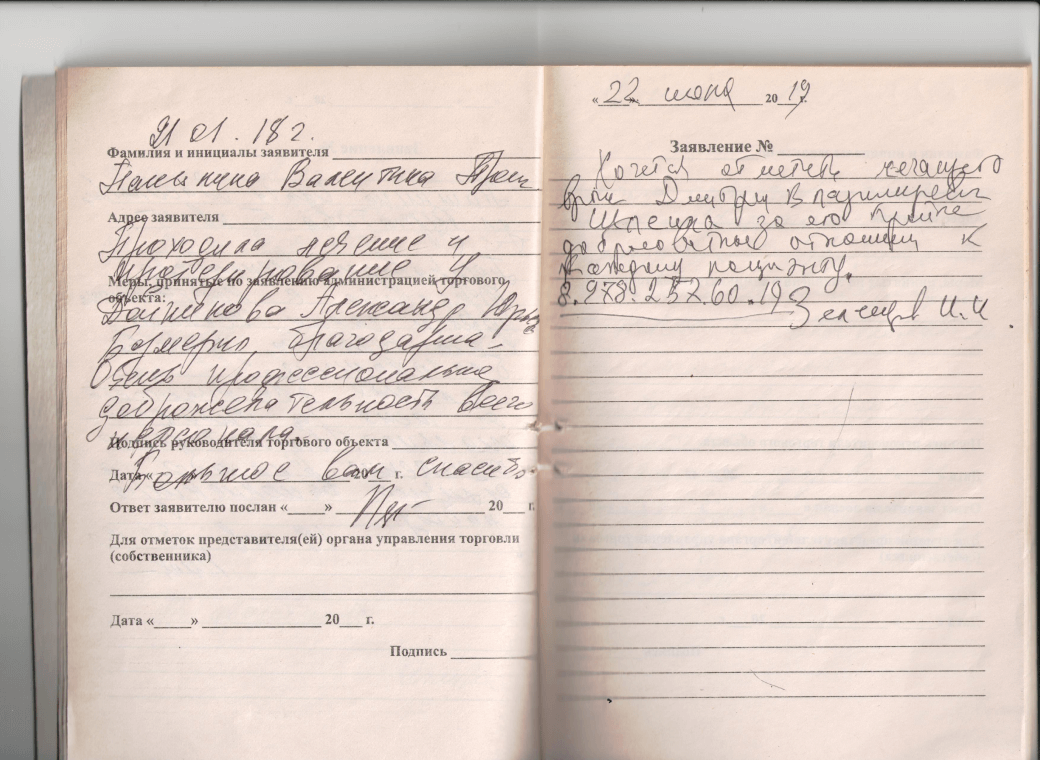 21 01. 18 г.
Фамилия и инициалы заявителя
Валентина
Адрес заявителя
Проходила лечение и
протезирование у
Меры, принятые по заявлению администрацией торгового
объекта:
Александр
благодарна.
Очень профессионально
доброжелательность всего
персонала.
Подпись руководителя торгового объекта
Большое вам спасибо
Дата « 20 г.
Ответ заявителю послан «____» 20___ г.
Для отметок представителя(ей) органа управления торговли
(собственника)
Дата «____» 20___ г.
Подпись
«22» июня 2019 г.
Заявление №
Хочется отметить лечащего
врача Дмитрия Владимировича
за его крайне
добросовестное отношение к
каждому пациенту.
8.978.257.60.19
И.И